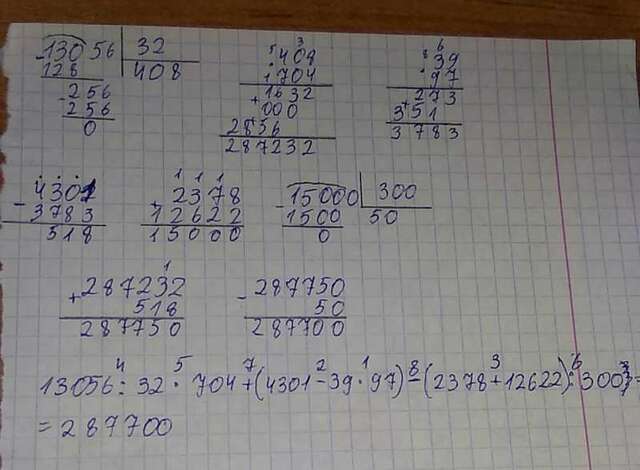 13056 | 32
- 128 | 408
- 256
256
0
5 3
408
704
1632
+ 000
2856
287232
8 6
39
97
273
+ 351
3783
- 4301
3783
518
1 1 1
+ 2378
12622
15000
- 15000 | 300
1500 | 50
0
1
+ 287232
518
287750
- 287750
50
287700
4 5 7 2 1 8 3 6
13056 : 32 · 704 + (4301 - 39 · 97) - (2378 + 12622) : 300 =
= 287700